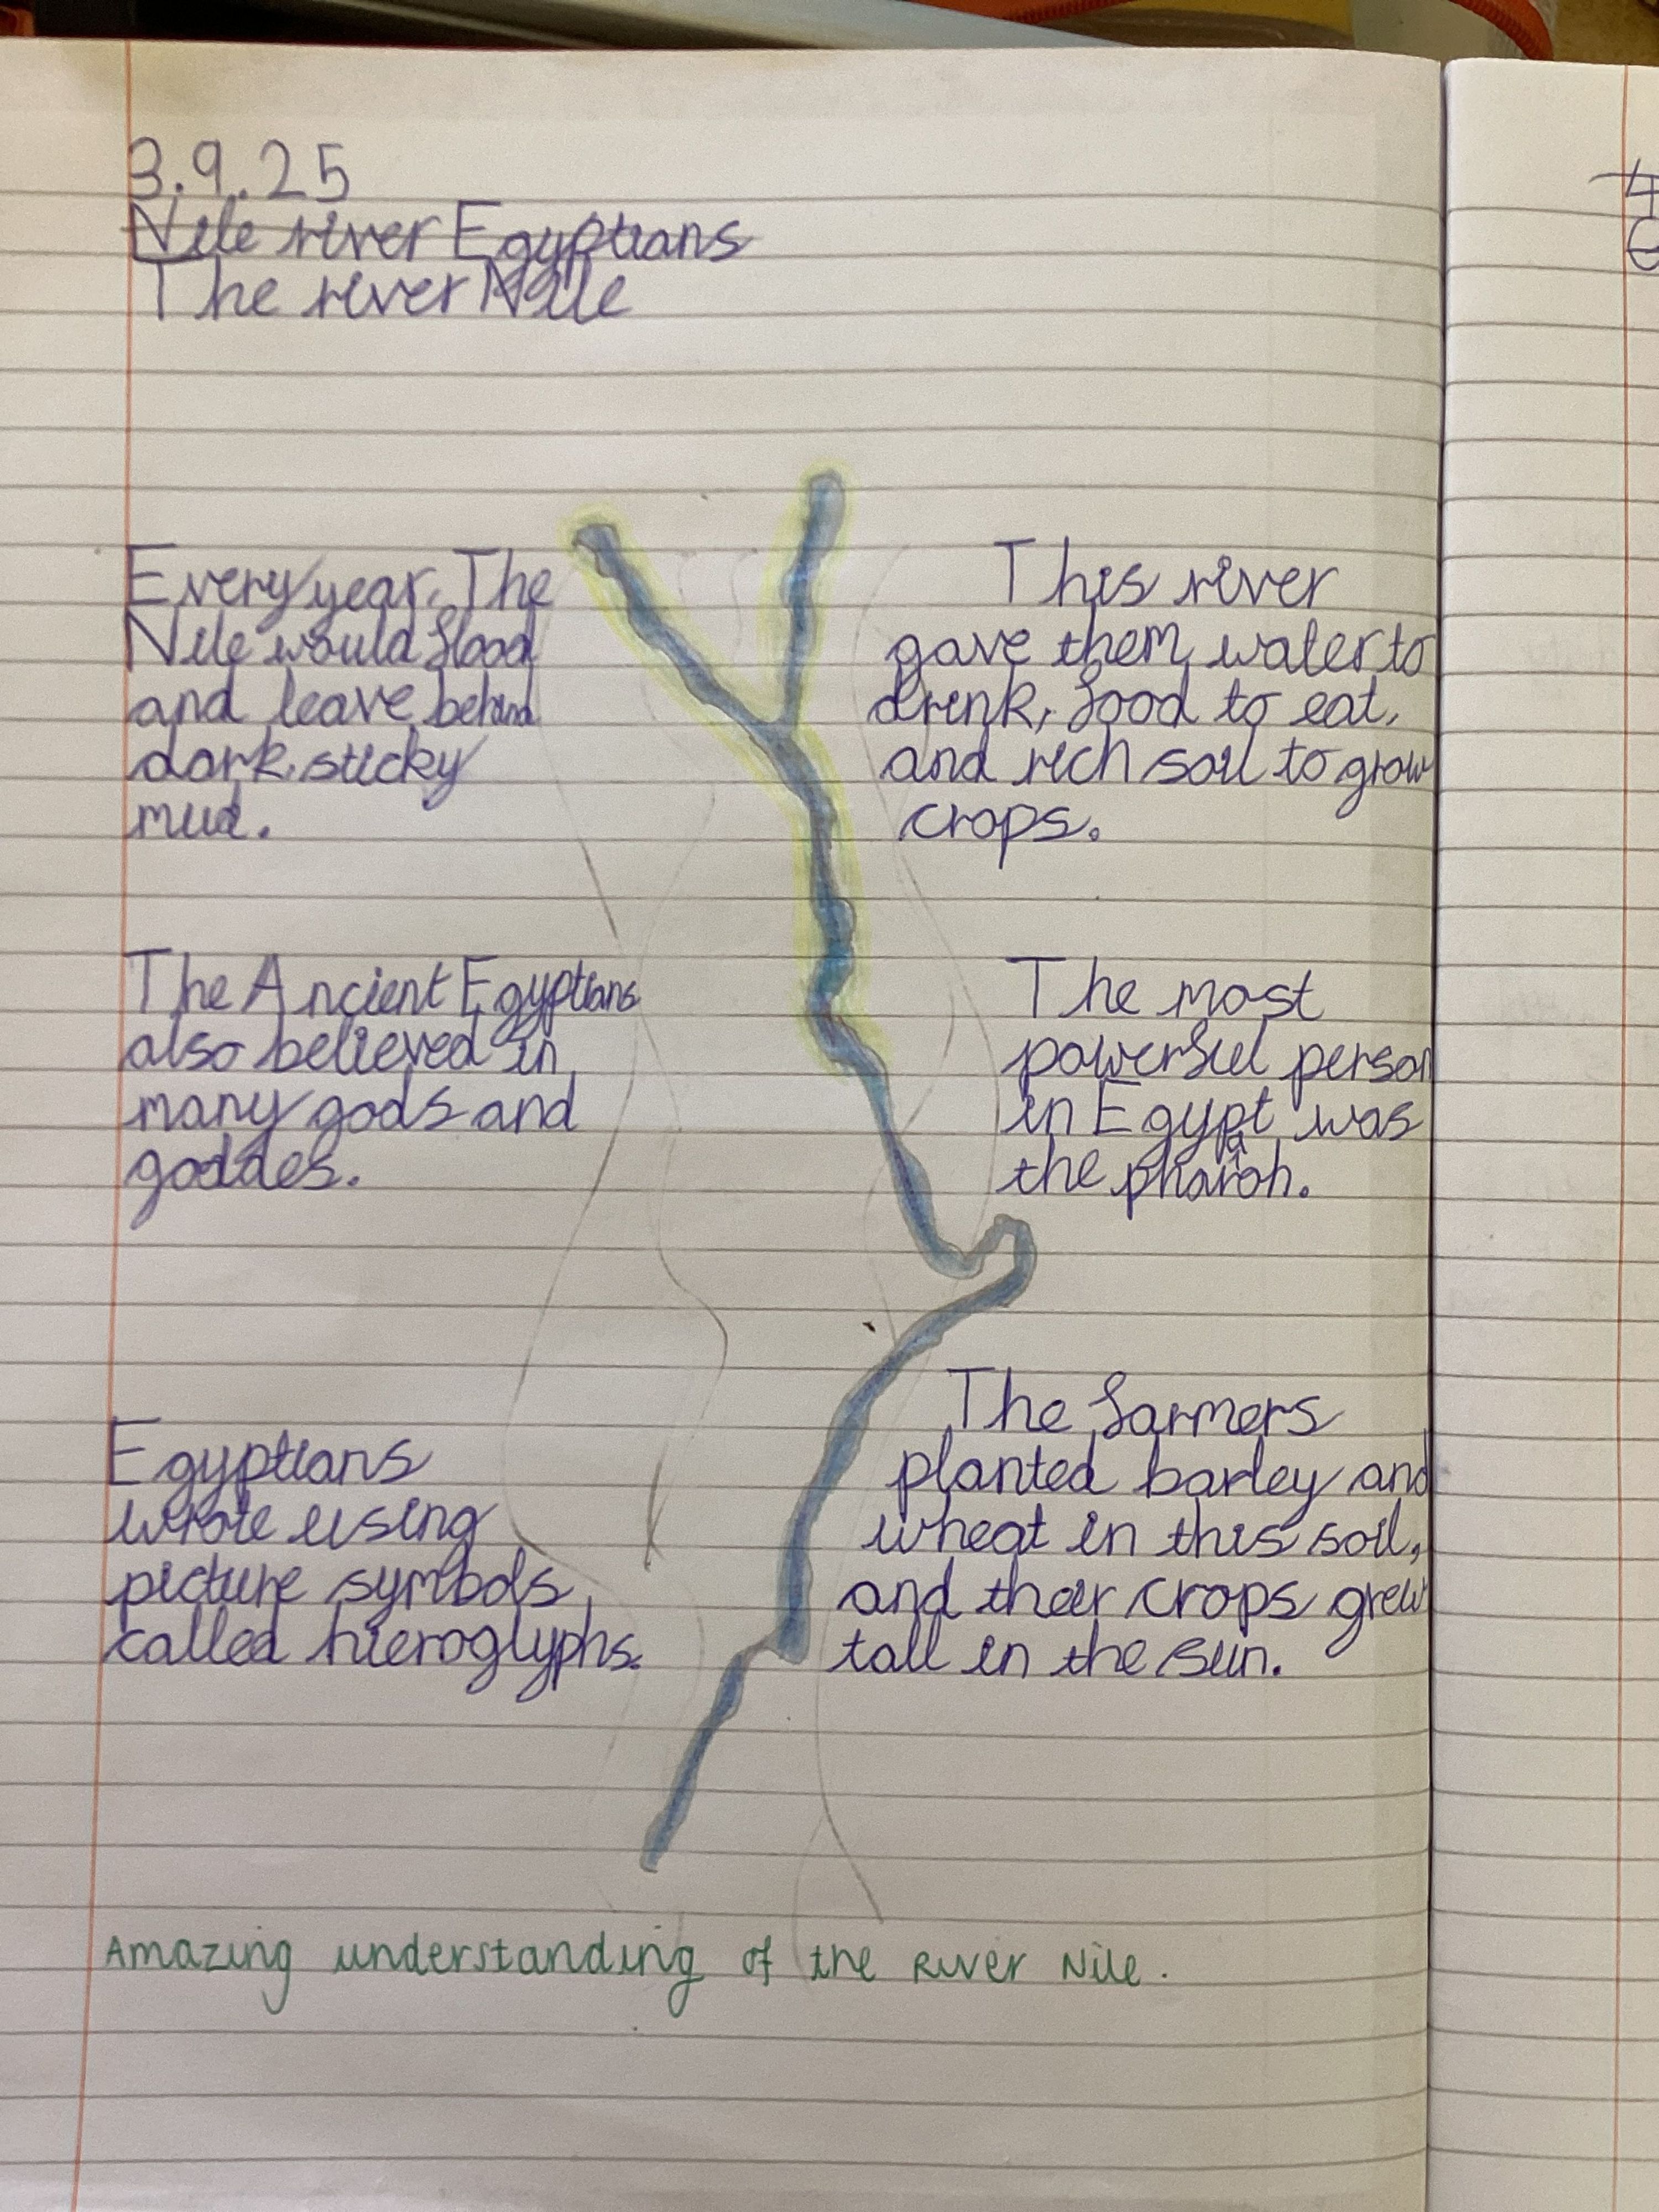 3.9.25
Nile river Egyptians
The river Nile
Every year. The
Nile would flood
and leave behind
dark, sticky
mud.
This river
gave them water to
drink, food to eat,
and rich soil to grow
crops.
The Ancient Egyptians
also believed in
many gods and
goddes.
The most
powerful person
in Egypt was
the pharaoh.
Egyptians
wrote using
picture symbols
called hieroglyphs.
The farmers
planted barley and
wheat in this soil,
and their crops grew
tall in the sun.
Amazing understanding of the River Nile.